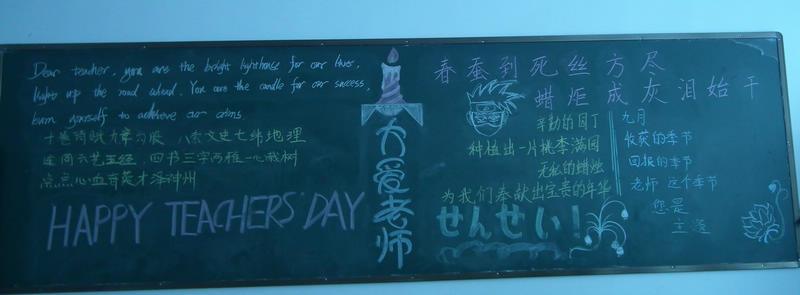 Dear teacher, you are the bright lighthouse for our lives,
lights up the road ahead. You are the candle for our success,
burn yourself to achieve our
八索文史七纬地理
四书三字两雅一心栽树
点点心血育英才泽神州
HAPPY TEACHERS' DAY
大爱老师
春蚕到死丝方尽
蜡炬成灰泪始干
辛勤的园丁
种植出一片桃李满园
无私的蜡烛
为我们奉献出宝贵的年华
せんせい!
九月
收获的季节
回报的季节
老师 这个季节
您是
主